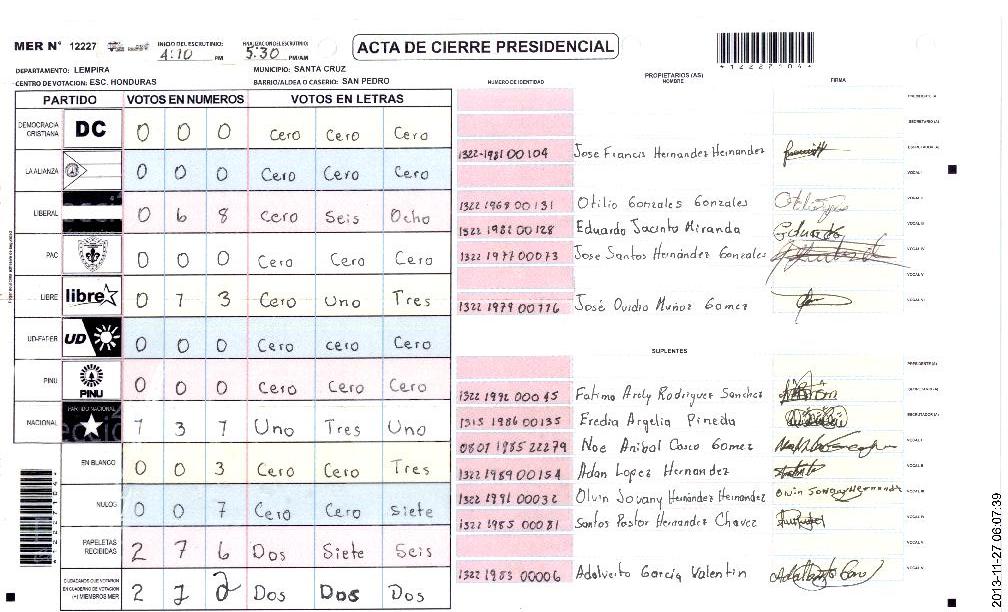 MER N° 12227 INICIO DEL ESCRUTINIO: 4:10 PM FINALIZACION ESCRUTINIO: 5:30 PM/AM ACTA DE CIERRE PRESIDENCIAL
DEPARTAMENTO: LEMPIRA MUNICIPIO: SANTA CRUZ
CENTRO DE VOTACION: ESC. HONDURAS BARRIO/ALDEA O CASERIO: SAN PEDRO
NUMERO DE IDENTIDAD PROPIETARIOS (AS) NOMBRE FIRMA
PARTIDO VOTOS EN NUMEROS VOTOS EN LETRAS
DEMOCRACIA CRISTIANA DC 0 0 0 Cero Cero Cero
LA ALIANZA 0 0 0 Cero Cero Cero
LIBERAL 0 6 8 Cero Seis Ocho
PAC 0 0 0 Cero Cero Cero
LIBRE libre 0 1 3 Cero Uno Tres
UD-FAPER UD 0 0 0 Cero Cero Cero
PINU PINU 0 0 0 Cero Cero Cero
NACIONAL PARTIDO NACIONAL 1 3 7 Uno Tres Uno
EN BLANCO 0 0 3 Cero Cero Tres
NULOS 0 0 7 Cero Cero Siete
PAPELETAS RECIBIDAS 2 7 6 Dos Siete Seis
CIUDADANOS QUE VOTARON EN CUADERNO DE VOTACION (+) MIEMBROS MER 2 2 2 Dos Dos Dos
PRESIDENTE (A)
SECRETARIO (A)
1322-1981 00104 Jose Francis Hernandez Hernandez ESCRUTADOR (A)
VOCAL I
1322 1968 00131 Otilio Gonzales Gonzales VOCAL II
1322 1982 00128 Eduardo Jacinto Miranda Eduardo VOCAL III
1322 1977 00073 Jose Santos Hernández Gonzales VOCAL IV
VOCAL V
1322 1979 00776 José Ovidio Muñoz Gomez VOCAL VI
SUPLENTES
PRESIDENTE (A)
1322 1992 00045 Fatima Arely Rodriguez Sanchez SECRETARIO (A)
1315 1986 00135 Eredia Argelia Pineda ESCRUTADOR (A)
0801 1985 22279 Noe Anibal Casco Gomez VOCAL I
1322 1989 00154 Adan Lopez Hernandez VOCAL II
1322 1991 00032 Olvin Jovany Hernández Hernandez VOCAL III
1322 1985 00081 Santos Pastor Hernandez Chavez VOCAL IV
VOCAL V
1322 1983 00006 Adalverto Garcia Valentin VOCAL VI
2013-11-27 06:07:39